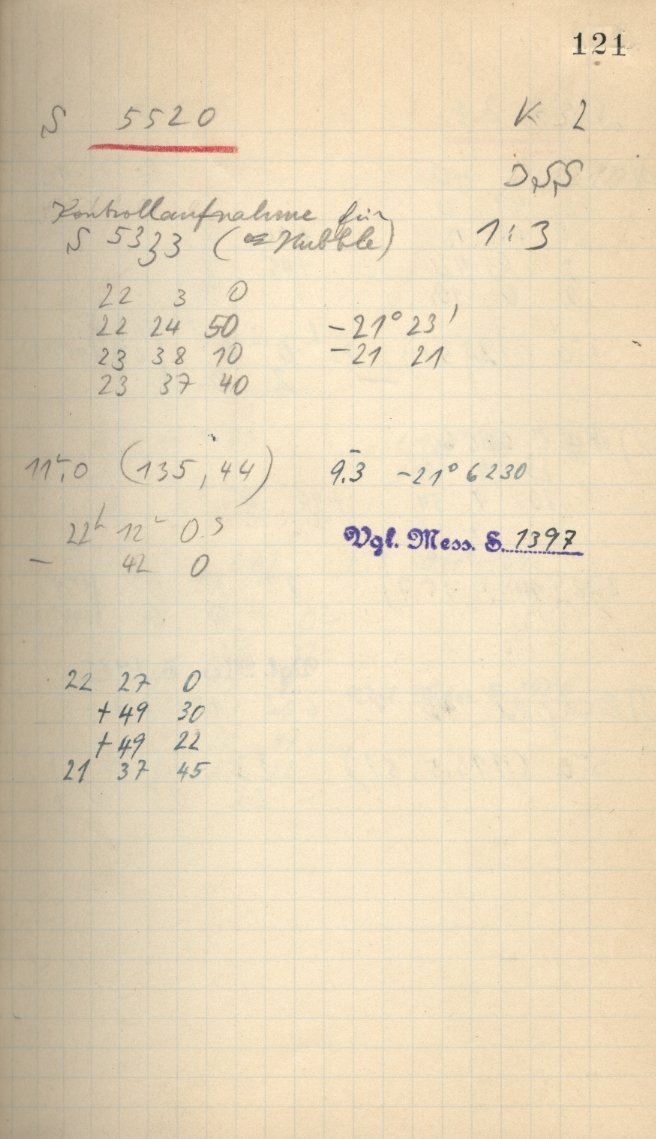 121
S 5520 K 2
DSS
Kontrollaufnahme für
S 5333 ( = Hubble) 1:3
22 3 0
22 24 50 -21° 23'
23 38 10 -21 21
23 37 40
11,0 (135,44) 9.3 -21° 6230
22h 12 0.5
- 42 0
Vgl. Mess. S. 1397
22 27 0
+49 30
+49 22
21 37 45